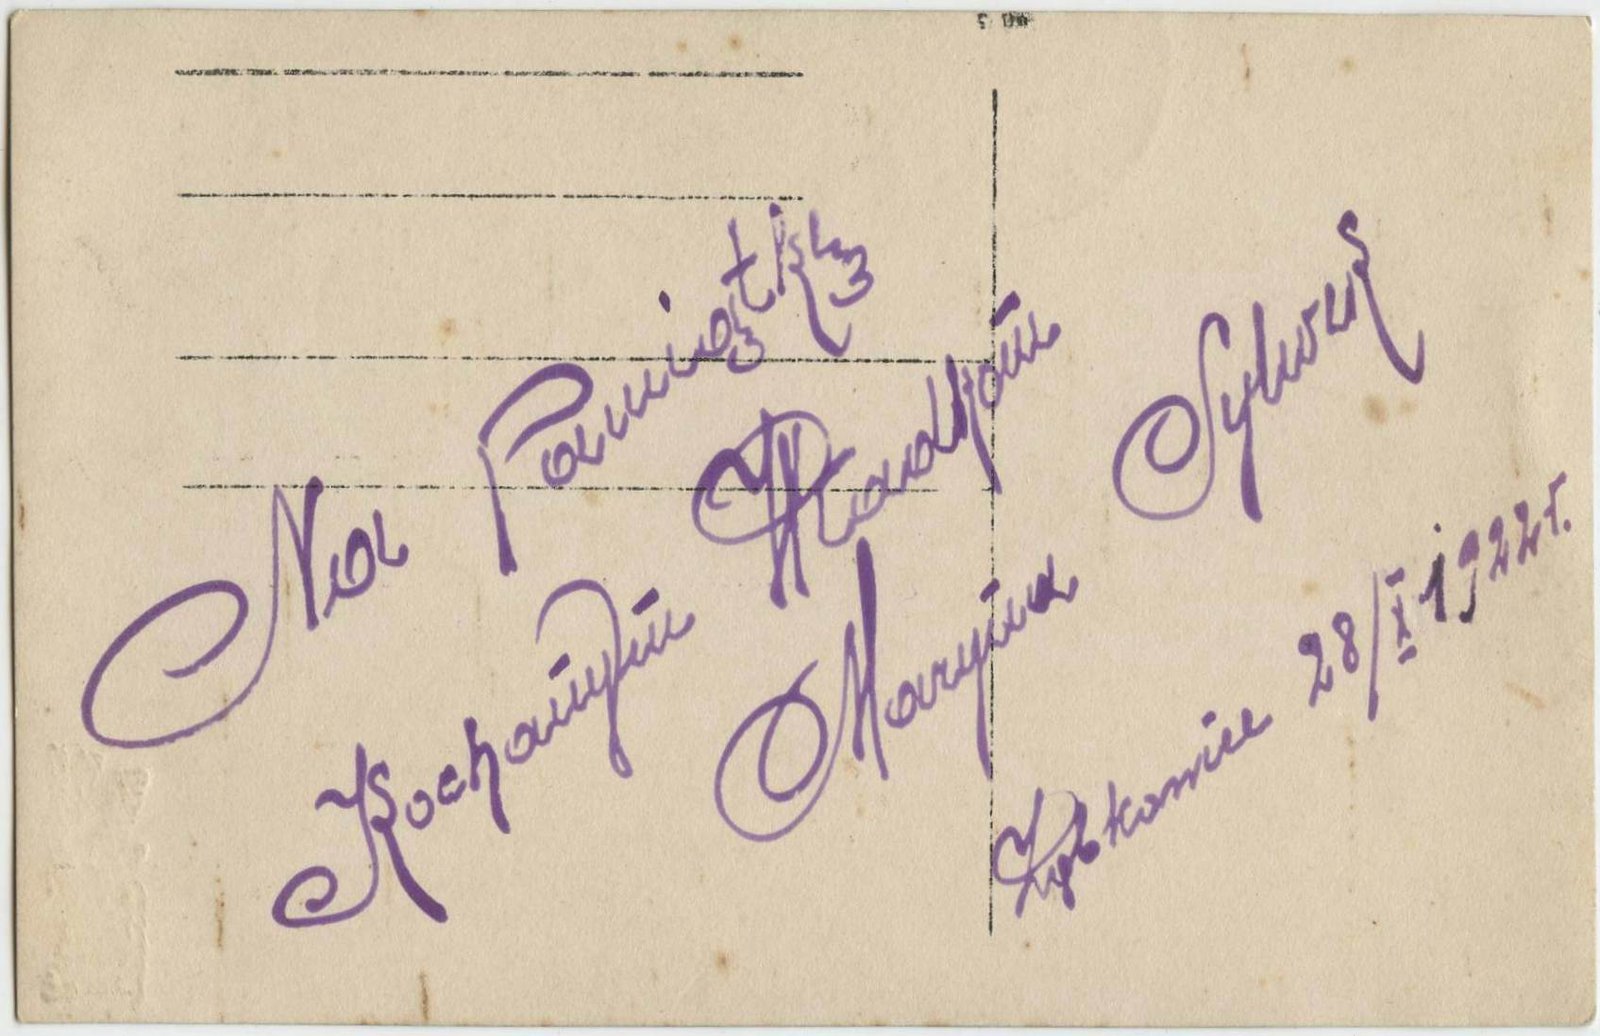 Na Pamiątkę
Kochanym Wadkom
Maryna Sylwek
Ząbkowice 28/X 1922 r.